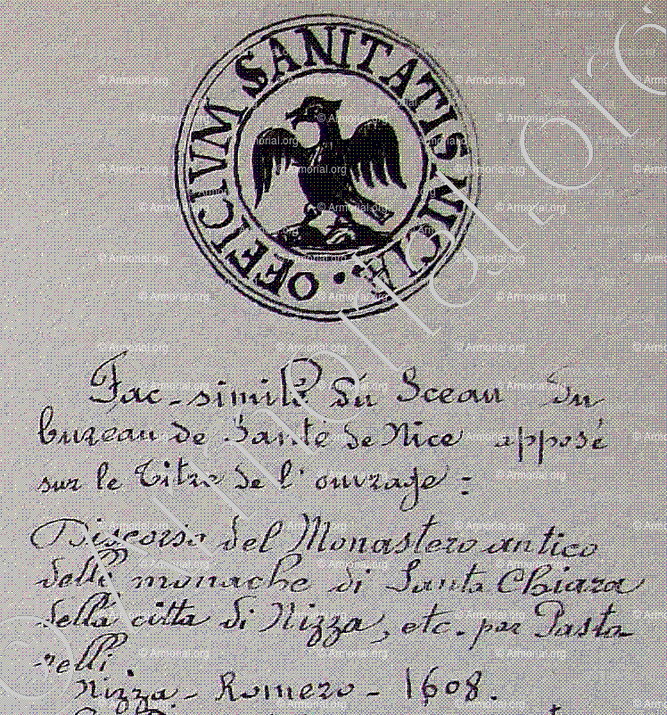 OFFICIVM SANITATIS NICIÆ.
Fac-similé du Sceau du
bureau de Santé de Nice apposé
sur le Titre de l'ouvrage :
Discorso del Monastero antico
delli monache di Santa Chiara
della citta di Nizza, etc. par Pasto
relli.
Nizza - Romero - 1608.
© Armorial.org